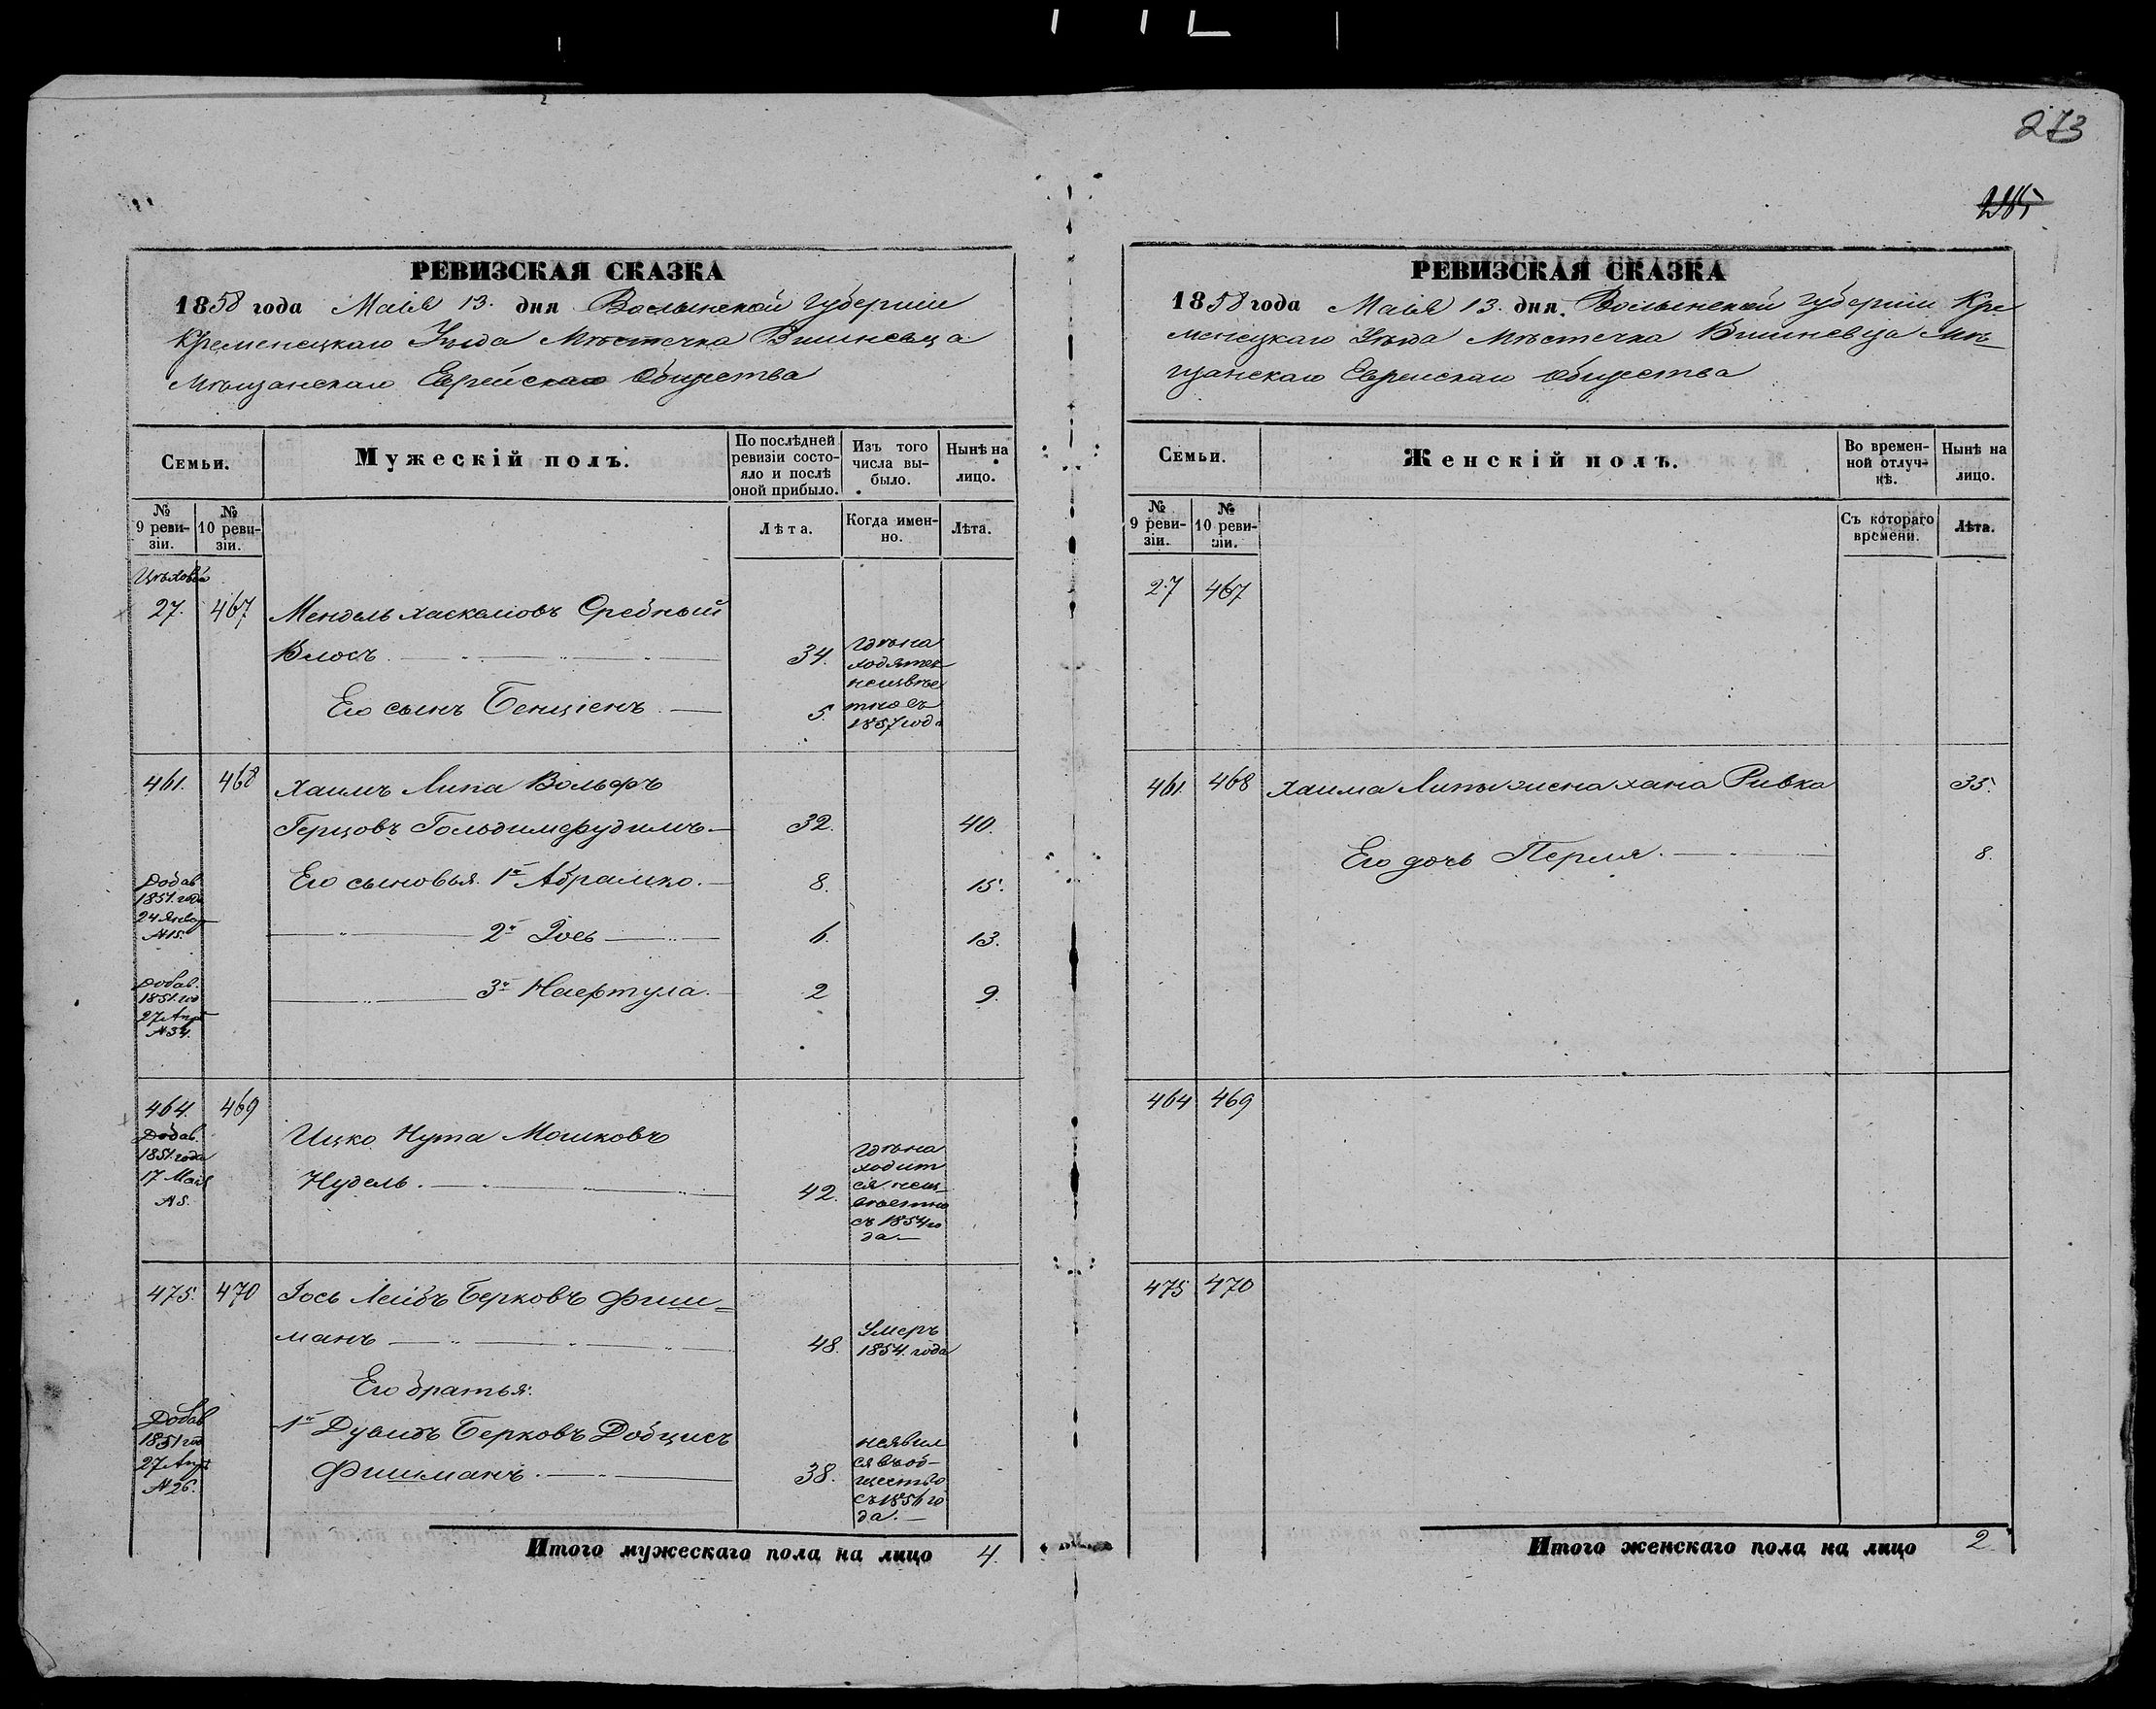 273
285
РЕВИЗСКАЯ СКАЗКА
1858 года Маія 13. дня Волынской Губерніи
Кременецкаго Уѣзда Мѣстечка Вишневца
Мѣщанскаго Еврейскаго Общества
Семьи.
Мужескій полъ.
По послѣдней ревизіи состояло и послѣ оной прибыло.
Изъ того числа выбыло.
Нынѣ на лицо.
№ 9 ревизіи.
№ 10 ревизіи.
Лѣта.
Когда именно.
Лѣта.
Цѣховой
27. 467 Мендель Хаскелювъ Средный
Влосъ 34. гдѣ на
ходятся
неизвѣс
тно съ
1857 года
Его сынъ Бенціенъ 5.
461. 468 Хаимъ Липа Вольфъ
Герцовъ 32. 40.
Добав.
1851. года
24 Январ
№ 15.
Его сыновья. 1й Абрамко. 8. 15.
2й Іось 6. 13.
Добав.
1851. го
27 Апр
№ 34.
3й Нафтула. 2 9.
464. 469
Добав.
1851. года
17 Маія
№ 8.
Ицко Нута Мошковъ
Нудель. 42. гдѣ на
ходит
ся неиз
вѣстно
съ 1854 го
да.
475. 470 Іось Лейбъ Берковъ Фиш=
манъ 48. Умеръ
1854. года
Его братья:
Добав
1851 го
27 Апр
№ 26.
1й Дувидъ Берковъ Добцисъ
Фишманъ. 38. неявил
ся въ об-
щество
съ 1856 го
да.
Итого мужескаго пола на лицо 4.
РЕВИЗСКАЯ СКАЗКА
1858 года Маія 13. дня. Волынской Губерніи Кре
менецкаго Уѣзда Мѣстечка Вишневца Мѣ
щанскаго Еврейскаго Общества
Семьи.
Женскій полъ.
Во временной отлучкѣ.
Нынѣ на лицо.
№ 9 ревизіи.
№ 10 ревизіи.
Съ котораго времени.
Лѣта.
27 467
461. 468 Хаима Липы жена Хана Ривка 35.
Его дочь Перля. 8.
464 469
475 470
Итого женскаго пола на лицо 2